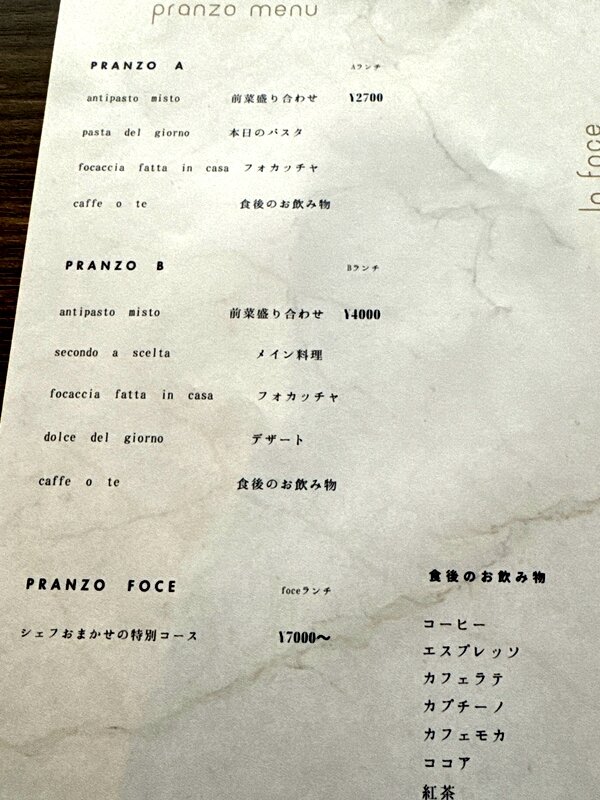 pranzo menu
la foce
PRANZO A Aランチ
antipasto misto 前菜盛り合わせ ¥2700
pasta del giorno 本日のパスタ
focaccia fatta in casa フォカッチャ
caffe o te 食後のお飲み物
PRANZO B Bランチ
antipasto misto 前菜盛り合わせ ¥4000
secondo a scelta メイン料理
focaccia fatta in casa フォカッチャ
dolce del giorno デザート
caffe o te 食後のお飲み物
PRANZO FOCE foceランチ
シェフおまかせの特別コース ¥7000〜
食後のお飲み物
コーヒー
エスプレッソ
カフェラテ
カプチーノ
カフェモカ
ココア
紅茶